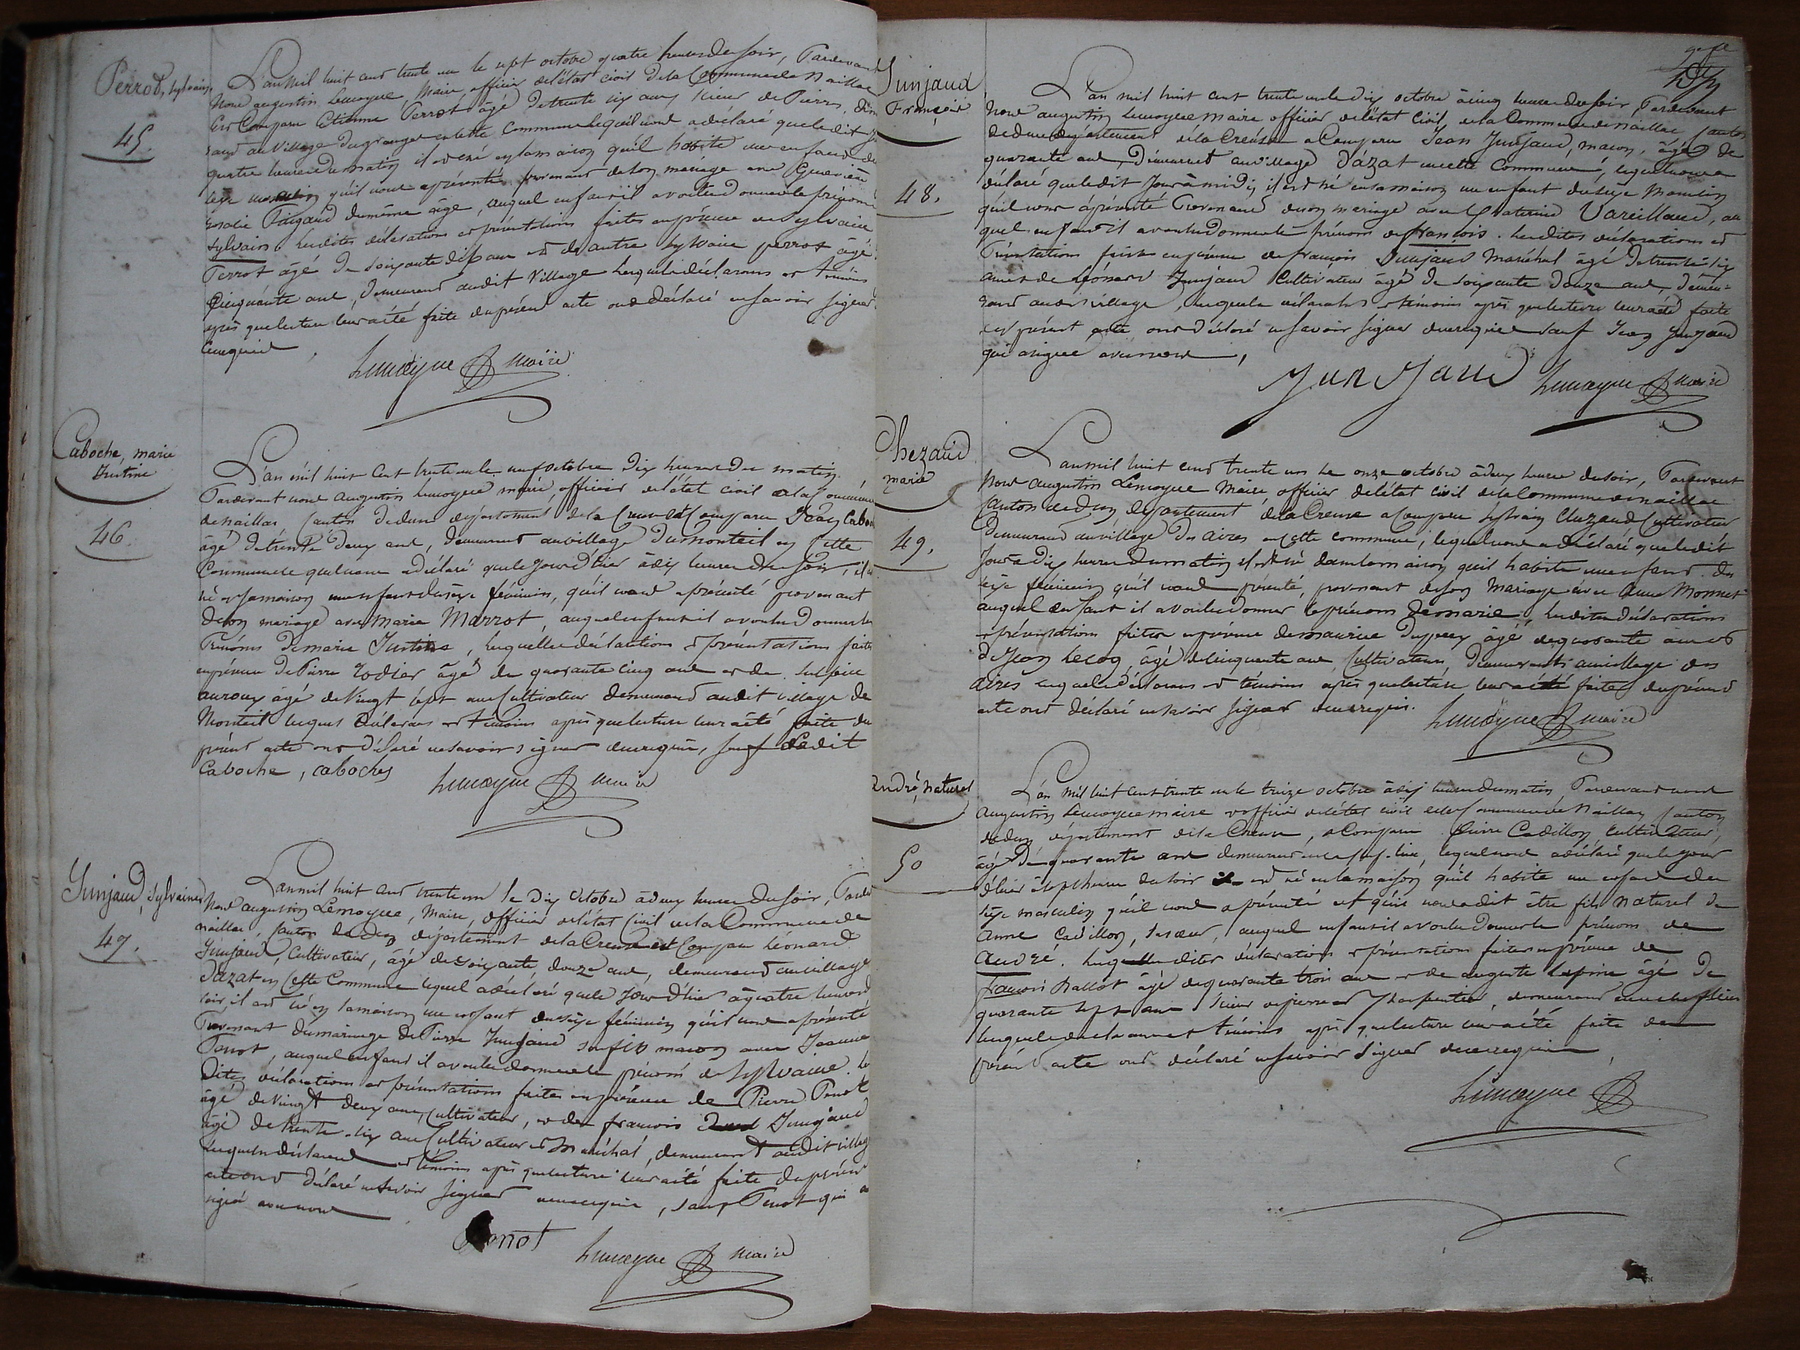 Perrot, Sylvain
45.
L'an mil huit cent trente un le sept octobre quatre heures du soir, Pardevant
Nous augustin Lemoyne, Maire, officier de l'état civil de la Commune de Naillac
Est Comparu Etienne Perrot âgé de trente six ans
au Village en cette Commune lequel nous a déclaré que ledit j
quatre heures du matin il est né en sa maison qu'il habite un enfant du
sexe masculin qu'il nous a présenté provenant de son mariage avec Geneviève
du même âge, auquel enfant il a voulu donner le prénom
Sylvain. Lesdites déclarations et présentations faites en présence de Sylvain
Perrot âgé de soixante dix ans et de autre Sylvain perrot âgé
Cinquante ans, demeurant audit Village lesquels déclarans et témoins
après que lecture leur a été faite du présent acte ont déclaré ne savoir signer
de ce requis
Lemoyne maire
Caboche, marie
Justine
46.
L'an mil huit cent trente un le neuf octobre dix heures du matin
Pardevant nous augustin Lemoyne maire, officier de l'état civil de la Commune
de Naillac, Canton de dun département de la Creuse est Comparu Jean Caboche
âgé de trente deux ans, demeurant au village du monteil en Cette
Commune lequel nous a déclaré que le jour d'hier à dix heures du soir, il est
né en sa maison un enfant du sexe féminin, qu'il nous a présenté provenant
de son mariage avec Marie Marrot, auquel enfant il a voulu donner les
Prénoms de marie Justine, lesquelles déclarations et présentations faites
en présence de Pierre Rodier âgé de quarante cinq ans et de Silvain
auroux âgé de vingt sept ans Cultivateur demeurant audit village de
Monteil lesquels déclarans et témoins après que lecture leur a été faite du
présent acte ont déclaré ne savoir signer de ce requis, sauf ledit
Caboche, caboches
Lemoyne maire
Junjaud, Sylvaine
47.
L'an mil huit cent trente un le dix octobre à deux heures du soir, Pardev
Nous augustin Lemoyne, Maire, officier de l'état Civil de la Commune de
naillac, Canton de dun département de la Creuse est Comparu Léonard
Junjaud, Cultivateur, âgé de soixante douze ans, demeurant au village
d'azat en Cette Commune lequel a déclaré que le Jour d'hier à quatre heures
soir, il est né en sa maison un enfant du sexe féminin qu'il nous a présenté
Provenant du mariage de Pierre Junjaud son fils maçon avec Jeanne
Penot, auquel enfant il a voulu donner le prénom de Sylvaine. Les
dites déclarations et présentations faites en présence de Pierre Penot
âgé de vingt deux ans, Cultivateur, et de françois Junjaud
âgé de trente six ans Cultivateur et Maréchal, demeurant audit village
lesquels déclarant et témoins après que lecture leur a été faite du présent
acte ont déclaré ne savoir signer de ce requis, sauf Penot qui a
signé avec nous
Penot Lemoyne maire
Junjaud
François
48.
L'an mil huit cent trente un le dix octobre à cinq heures du soir, Pardevant
Nous augustin Lemoyne maire officier de l'état civil, de la Commune de naillac Canton
de dun département de la Creuse a Comparu Jean Junjaud, maçon, âgé de
quarante ans, Demeurant au village d'azat en cette Commune, lequel nous a
déclaré que ledit Jour à midi, il est né en sa maison un enfant du sexe Masculin
qu'il nous a présenté Provenant de son mariage avec Catherine Vareillaud, au
quel enfant il a voulu donner le prénom de françois. Lesdites déclarations et
Présentations faites en présence de francois Junjaud Maréchal âgé de trente six
ans et de Léonard Junjaud Cultivateur âgé de soixante douze ans, demeu-
rant audit village, lesquels déclarants et témoins après que lecture leur a été faite
du présent acte ont déclaré ne savoir signer de ce requis sauf Jean Junjaud
qui a signé avec nous,
Junjaud Lemoyne maire
Chezaud
marie
49.
L'an mil huit cent trente un le onze octobre à deux heures du soir, Pardevant
Nous augustin Lemoyne Maire officier de l'état civil de la Commune de naillac
Canton de Dun département de la Creuse a Comparu Sylvain Chezaud Cultivateur
Demeurant au village des aires en Cette commune, lequel nous a déclaré que ledit
Jour à dix heures du matin il est né dans la maison qu'il habite un enfant du
sexe féminin qu'il nous présenté, provenant de son Mariage avec Anne Monnet
auquel enfant il a voulu donner le prénom de marie, Lesdites déclarations
et présentations faites en présence de maurice âgé de quarante ans et
de Jean Lecoq, âgé de cinquante ans, Cultivateurs, demeurants au village des
aires lesquels déclarans et témoins après que lecture leur a été faite du présent
acte ont déclaré ne savoir signer de ce requis.
Lemoyne maire
andré, naturel
50
L'an mil huit cent trente un le treize octobre à dix heures du matin, Pardevant nous
augustin Lemoyne maire et officier de l'état civil de la Commune de Naillac Canton
de dun département de la Creuse, a Comparu Pierre Cadillon, cultivateur,
âgé de quarante ans demeurant en ce chef lieu, lequel nous a déclaré que le jour
d'hier à sept heures du soir il est né en la maison qu'il habite un enfant du
sexe masculin qu'il nous a présenté et qu'il nous a dit être fils naturel de
Anne Cadillon, sa sœur, auquel enfant il a voulu donner le prénom de
andré. Lesquelles dites déclarations et présentation faites en présence de
francois Ballot âgé de quarante trois ans et de auguste Lapine âgé de
quarante sept ans charpentier, demeurant en ce chef lieu
lesquels déclarans et témoins après que lecture leur a été faite du
présent acte ont déclaré ne savoir signer de ce requis,
Lemoyne